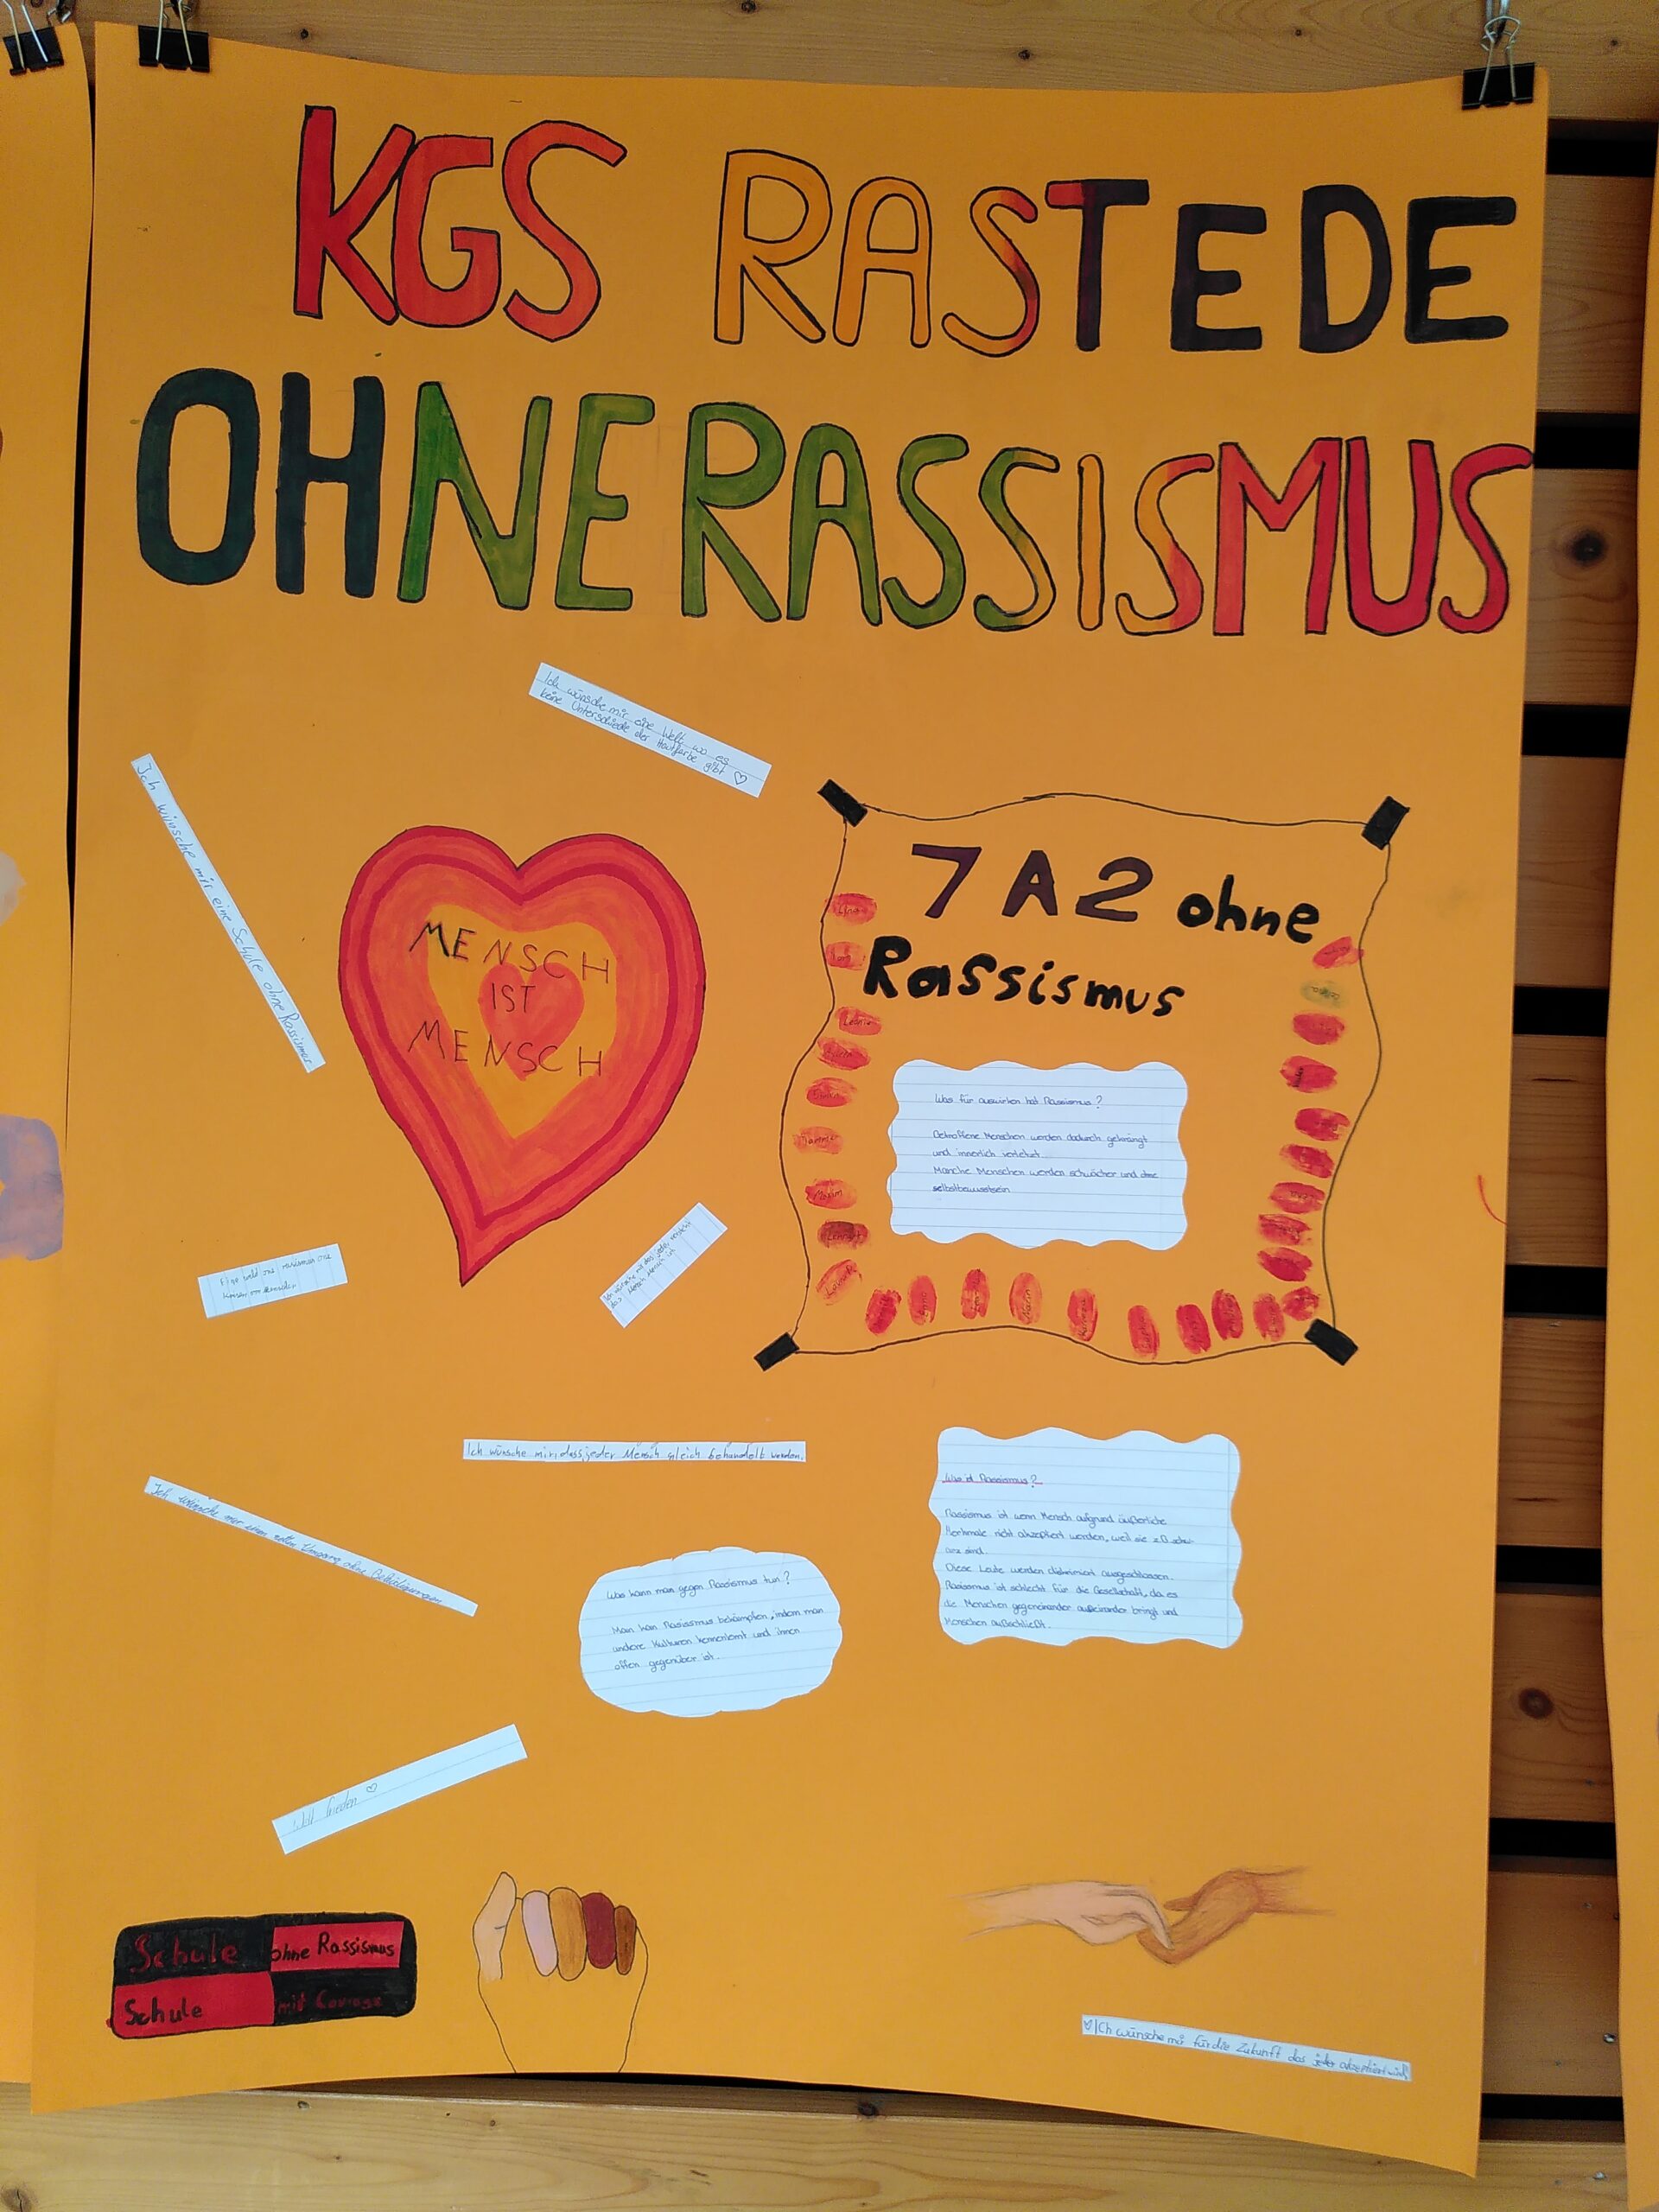 KGS RASTEDE
OHNE RASSISMUS
Ich wünsche mir eine Welt wo es
keine Unterschiede der Hautfarbe gibt ♡
Ich wünsche mir eine Schule ohne Rassismus
MENSCH
IST
MENSCH
7A2 ohne
Rassismus
Leonie
Maxim
Lennart
Was für auswirken hat Rassismus?
Betroffene Menschen werden dadurch gekrängt
und innerlich verletzt.
Manche Menschen werden schwächer und ohne
selbstbewusstsein.
Ich wünsche mir das jeder versteht
das Mensch Mensch ist
Ich wünsche mir, dass jeder Mensch gleich behandelt werden.
Was ist Rassismus?
Rassismus ist wenn Mensch aufgrund äußerliche
Merkmale nicht akzeptiert werden, weil sie z.B. schw-
arz sind.
Diese Leute werden diskrimiert ausgeschlossen.
Rassismus ist schlecht für die Gesellschaft, da es
die Menschen gegeneinander außeinander bringt und
Menschen außschließt.
Ich wünsche mir einen Umgang ohne Beleidigungen
Was kann man gegen Rassismus tun?
Man kan Rassismus bekämpfen, indem man
andere Kulturen kennenlernt und ihnen
offen gegenüber ist.
Welt frieden ♡
Schule ohne Rassismus
Schule mit Courage
♡ Ich wünsche mir für die Zukunft das jeder akzeptiert wird!